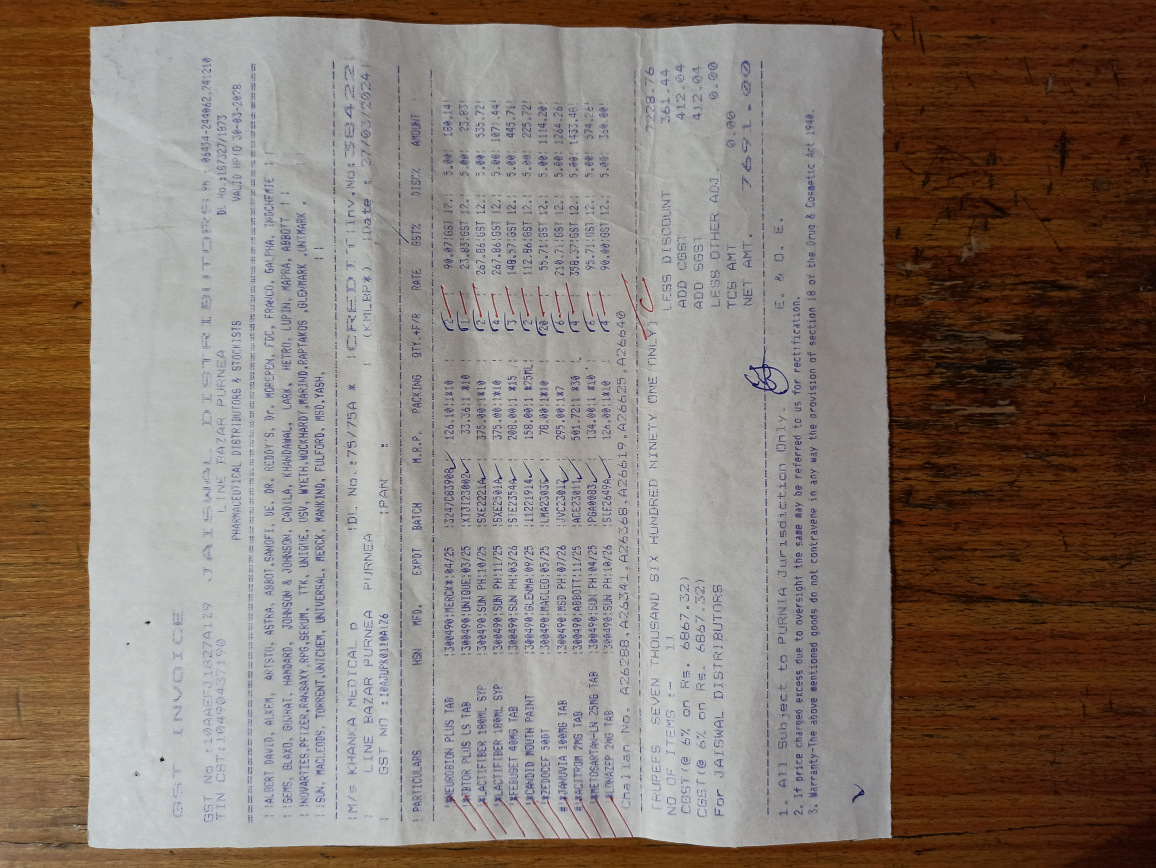 GST INVOICE
GST No :10AAEFJ1827A1Z9 JAISWAL DISTRIBUTORS Ph : 06454-244062,241210
TIN CST:10490437190 LINE BAZAR PURNEA DL No.:1187327/1873
PHARMACEUTICAL DISTRIBUTORS & STOCKISTS VALID UPTO 30-03-2028
ALBERT DAVID, ALKEM, ARISTO, ASTRA, ABBOT,SANOFI, UE, DR. REDDY'S, Dr. MOREPEN, FDC, FRANCO, GALPHA, INDCHEMIE
GEMS, GLAXO, GUJRAT, HANDARD, JOHNSON & JOHNSON, CADILA, KHANDAWAL, LARK, HETRO, LUPIN, MAPRA, ABBOTT
NOVARTIES,PFIZER,RANBAXY,RPG,SERUM, TTK, UNIQUE, USV, WYETH,WOCKHARDT,MARIND,RAPTAKOS ,GLENMARK ,UNIMARK ,
SUN, MACLEODS, TORRENT,UNICHEM, UNIVERSAL, MERCK, MANKIND, FULFORD, MSD,YASH,
M/s KHANKA MEDICAL P DL No.:75/75A * CREDIT Inv.No:38422
LINE BAZAR PURNEA PURNEA (KMLBP*) Date : 27/03/2024
GST NO :10AJUPK0120A1Z6 PAN :
PARTICULARS HSN MFD. EXPDT BATCH M.R.P. PACKING QTY.+F/R RATE GST% DISC% AMOUNT
*NEUROBION PLUS TAB 300490 MERCK* 04/25 3247C8390B 126.10 1*10 2 90.07 GST 12. 5.00 180.14
*VBTOR PLUS LS TAB 300490 UNIQUE 03/25 XT3123002 33.36 1 *10 1 23.83 GST 12. 5.00 23.83
*LACTIFIBER 180ML SYP 300490 SUN PH 10/25 SXE2221A 375.00 1*10 2 267.86 GST 12. 5.00 535.72
*LACTIFIBER 180ML SYP 300490 SUN PH 11/25 SXE2501A 375.00 1*10 4 267.86 GST 12. 5.00 1071.44
*FEBUGET 40MG TAB 300490 SUN PH 03/26 SIE2354A 208.00 1 *15 3 148.57 GST 12. 5.00 445.71
*CANDID MOUTH PAINT 300490 GLENMA 09/25 11221914 158.00 1 *25ML 2 112.86 GST 12. 5.00 225.72
*ZEDOCEF 50DT 300490 MACLEO 05/25 LMA2303C 78.00 1*10 20 55.71 GST 12. 5.00 1114.20
#*JANUVIA 100MG TAB 300490 MSD PH 07/26 JVC23012 295.00 1*7 6 210.71 GST 12. 5.00 1264.26
#*ACITROM 2MG TAB 300490 ABBOTT 11/25 ACE23011 501.72 1 *30 4 358.37 GST 12. 5.00 1433.48
*METOSARTAN-LN 25MG TAB 300490 SUN PH 04/25 PGA0083 134.00 1 *10 6 95.71 GST 12. 5.00 574.26
*LONAZEP 2MG TAB 300490 SUN PH 10/26 SIE2649A 126.00 1*10 4 90.00 GST 12. 5.00 360.00
Challan No. A26288,A26341,A26368,A26619,A26625,A26640
(RUPEES SEVEN THOUSAND SIX HUNDRED NINETY ONE ONLY) 7228.76
NO OF ITEMS :- 11 LESS DISCOUNT 361.44
CGST(@ 6% on Rs. 6867.32) ADD CGST 412.04
CGST(@ 6% on Rs. 6867.32) ADD SGST 412.04
For JAISWAL DISTRIBUTORS LESS OTHER ADJ. 0.00
TCS AMT 0.00
NET AMT. 7691.00
1. All Subject to PURNIA Jurisdiction Only. E. & O. E.
2. If price charged excess due to oversight the same may be referred to us for rectification.
3. Warranty-The above mentioned goods do not contravene in any way the provision of section 18 of the Drug & Cosmetic Act 1940.